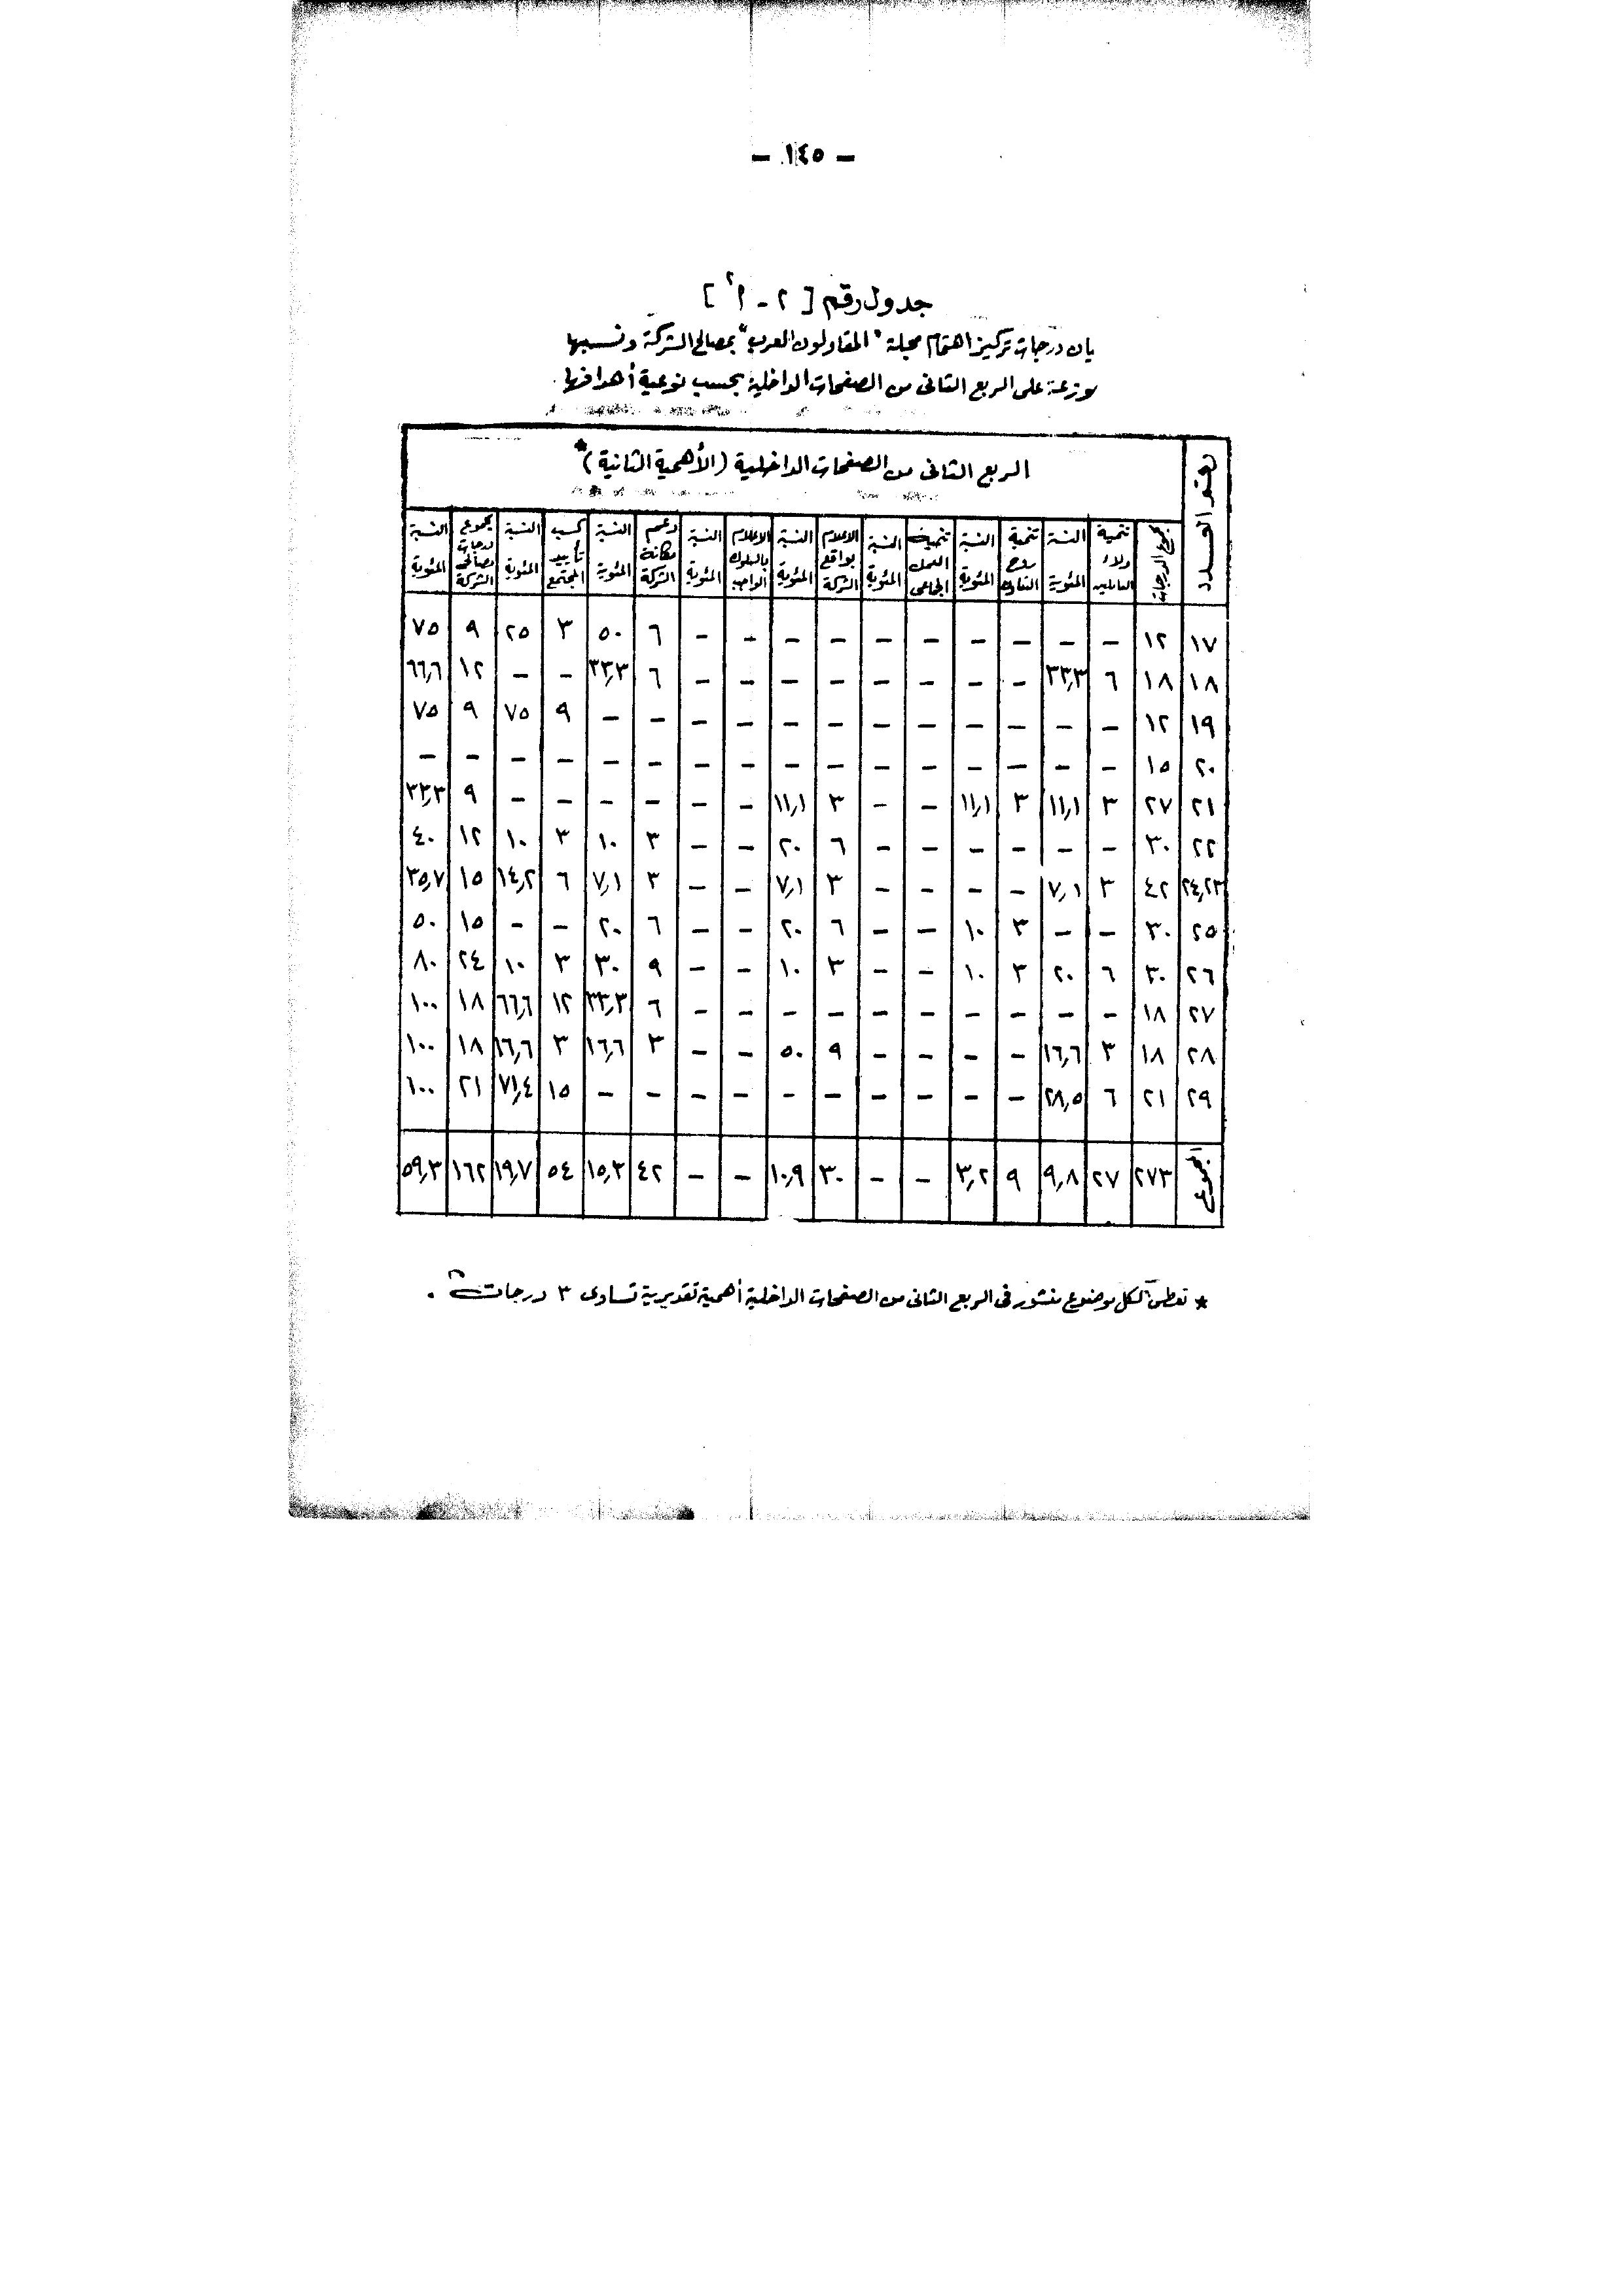 - ١٤٥ -
جدول رقم [ ٢ - أ ٢ ]
بيان درجات تركيز اهتمام مجلة " المقاولون العرب " بمصالح الشركة ونسبها
موزعة على الربع الثانى من الصفحات الداخلية بحسب نوعية أهدافها .
الربع الثانى من الصفحات الداخلية ( الأهمية الثانية ) *
العدد | مجموع الدرجات | تنمية ولاء العاملين | النسبة المئوية | تنمية روح التعاون | النسبة المئوية | تنمية العمل الجماعى | النسبة المئوية | الاعلام بواقع الشركة | النسبة المئوية | الاعلام بالسلوك الواجب | النسبة المئوية | دعم مكانة الشركة | النسبة المئوية | كسب تأييد المجتمع | النسبة المئوية | مجموع درجات مصالح الشركة | النسبة المئوية
١٧ | ١٢ | - | - | - | - | - | - | - | - | - | - | ٦ | ٥٠ | ٣ | ٢٥ | ٩ | ٧٥
١٨ | ١٨ | ٦ | ٣٣,٣ | - | - | - | - | - | - | - | - | ٦ | ٣٣,٣ | - | - | ١٢ | ٦٦,٦
١٩ | ١٢ | - | - | - | - | - | - | - | - | - | - | - | - | ٩ | ٧٥ | ٩ | ٧٥
٢٠ | ١٥ | - | - | - | - | - | - | - | - | - | - | - | - | - | - | - | -
٢١ | ٢٧ | ٣ | ١١,١ | ٣ | ١١,١ | - | - | ٣ | ١١,١ | - | - | - | - | - | - | ٩ | ٣٣,٣
٢٢ | ٣٠ | - | - | - | - | - | - | ٦ | ٢٠ | - | - | ٣ | ١٠ | ٣ | ١٠ | ١٢ | ٤٠
٢٤,٢٣ | ٤٢ | ٣ | ٧,١ | - | - | - | - | ٣ | ٧,١ | - | - | ٣ | ٧,١ | ٦ | ١٤,٢ | ١٥ | ٣٥,٧
٢٥ | ٣٠ | - | - | ٣ | ١٠ | - | - | ٦ | ٢٠ | - | - | ٦ | ٢٠ | - | - | ١٥ | ٥٠
٢٦ | ٣٠ | ٦ | ٢٠ | ٣ | ١٠ | - | - | ٣ | ١٠ | - | - | ٩ | ٣٠ | ٣ | ١٠ | ٢٤ | ٨٠
٢٧ | ١٨ | - | - | - | - | - | - | - | - | - | - | ٦ | ٣٣,٣ | ١٢ | ٦٦,٦ | ١٨ | ١٠٠
٢٨ | ١٨ | ٣ | ١٦,٦ | - | - | - | - | ٩ | ٥٠ | - | - | ٣ | ١٦,٦ | ٣ | ١٦,٦ | ١٨ | ١٠٠
٢٩ | ٢١ | ٦ | ٢٨,٥ | - | - | - | - | - | - | - | - | - | - | ١٥ | ٧١,٤ | ٢١ | ١٠٠
المجموع | ٢٧٣ | ٢٧ | ٩,٨ | ٩ | ٣,٢ | - | - | ٣٠ | ١٠,٩ | - | - | ٤٢ | ١٥,٣ | ٥٤ | ١٩,٧ | ١٦٢ | ٥٩,٣
* تعطى لكل موضوع منشور فى الربع الثانى من الصفحات الداخلية أهمية تقديرية تساوى ٣ درجات .